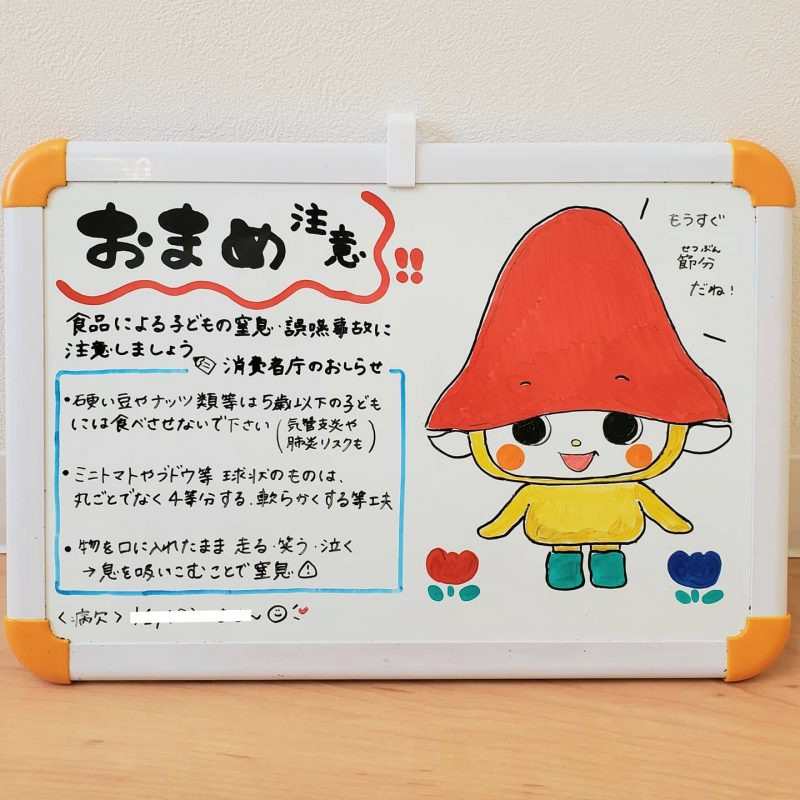 おまめ注意!!
食品による子どもの窒息・誤嚥事故に
注意しましょう
消費者庁のおしらせ
・硬い豆やナッツ類等は5歳以下の子ども
には食べさせないで下さい(気管支炎や
肺炎リスクも)
・ミニトマトやブドウ等 球状のものは、
丸ごとでなく4等分する、軟らかくする等工夫
・物を口に入れたまま 走る・笑う・泣く
→息を吸いこむことで窒息
<病欠>
もうすぐ
せつぶん
節分
だね!